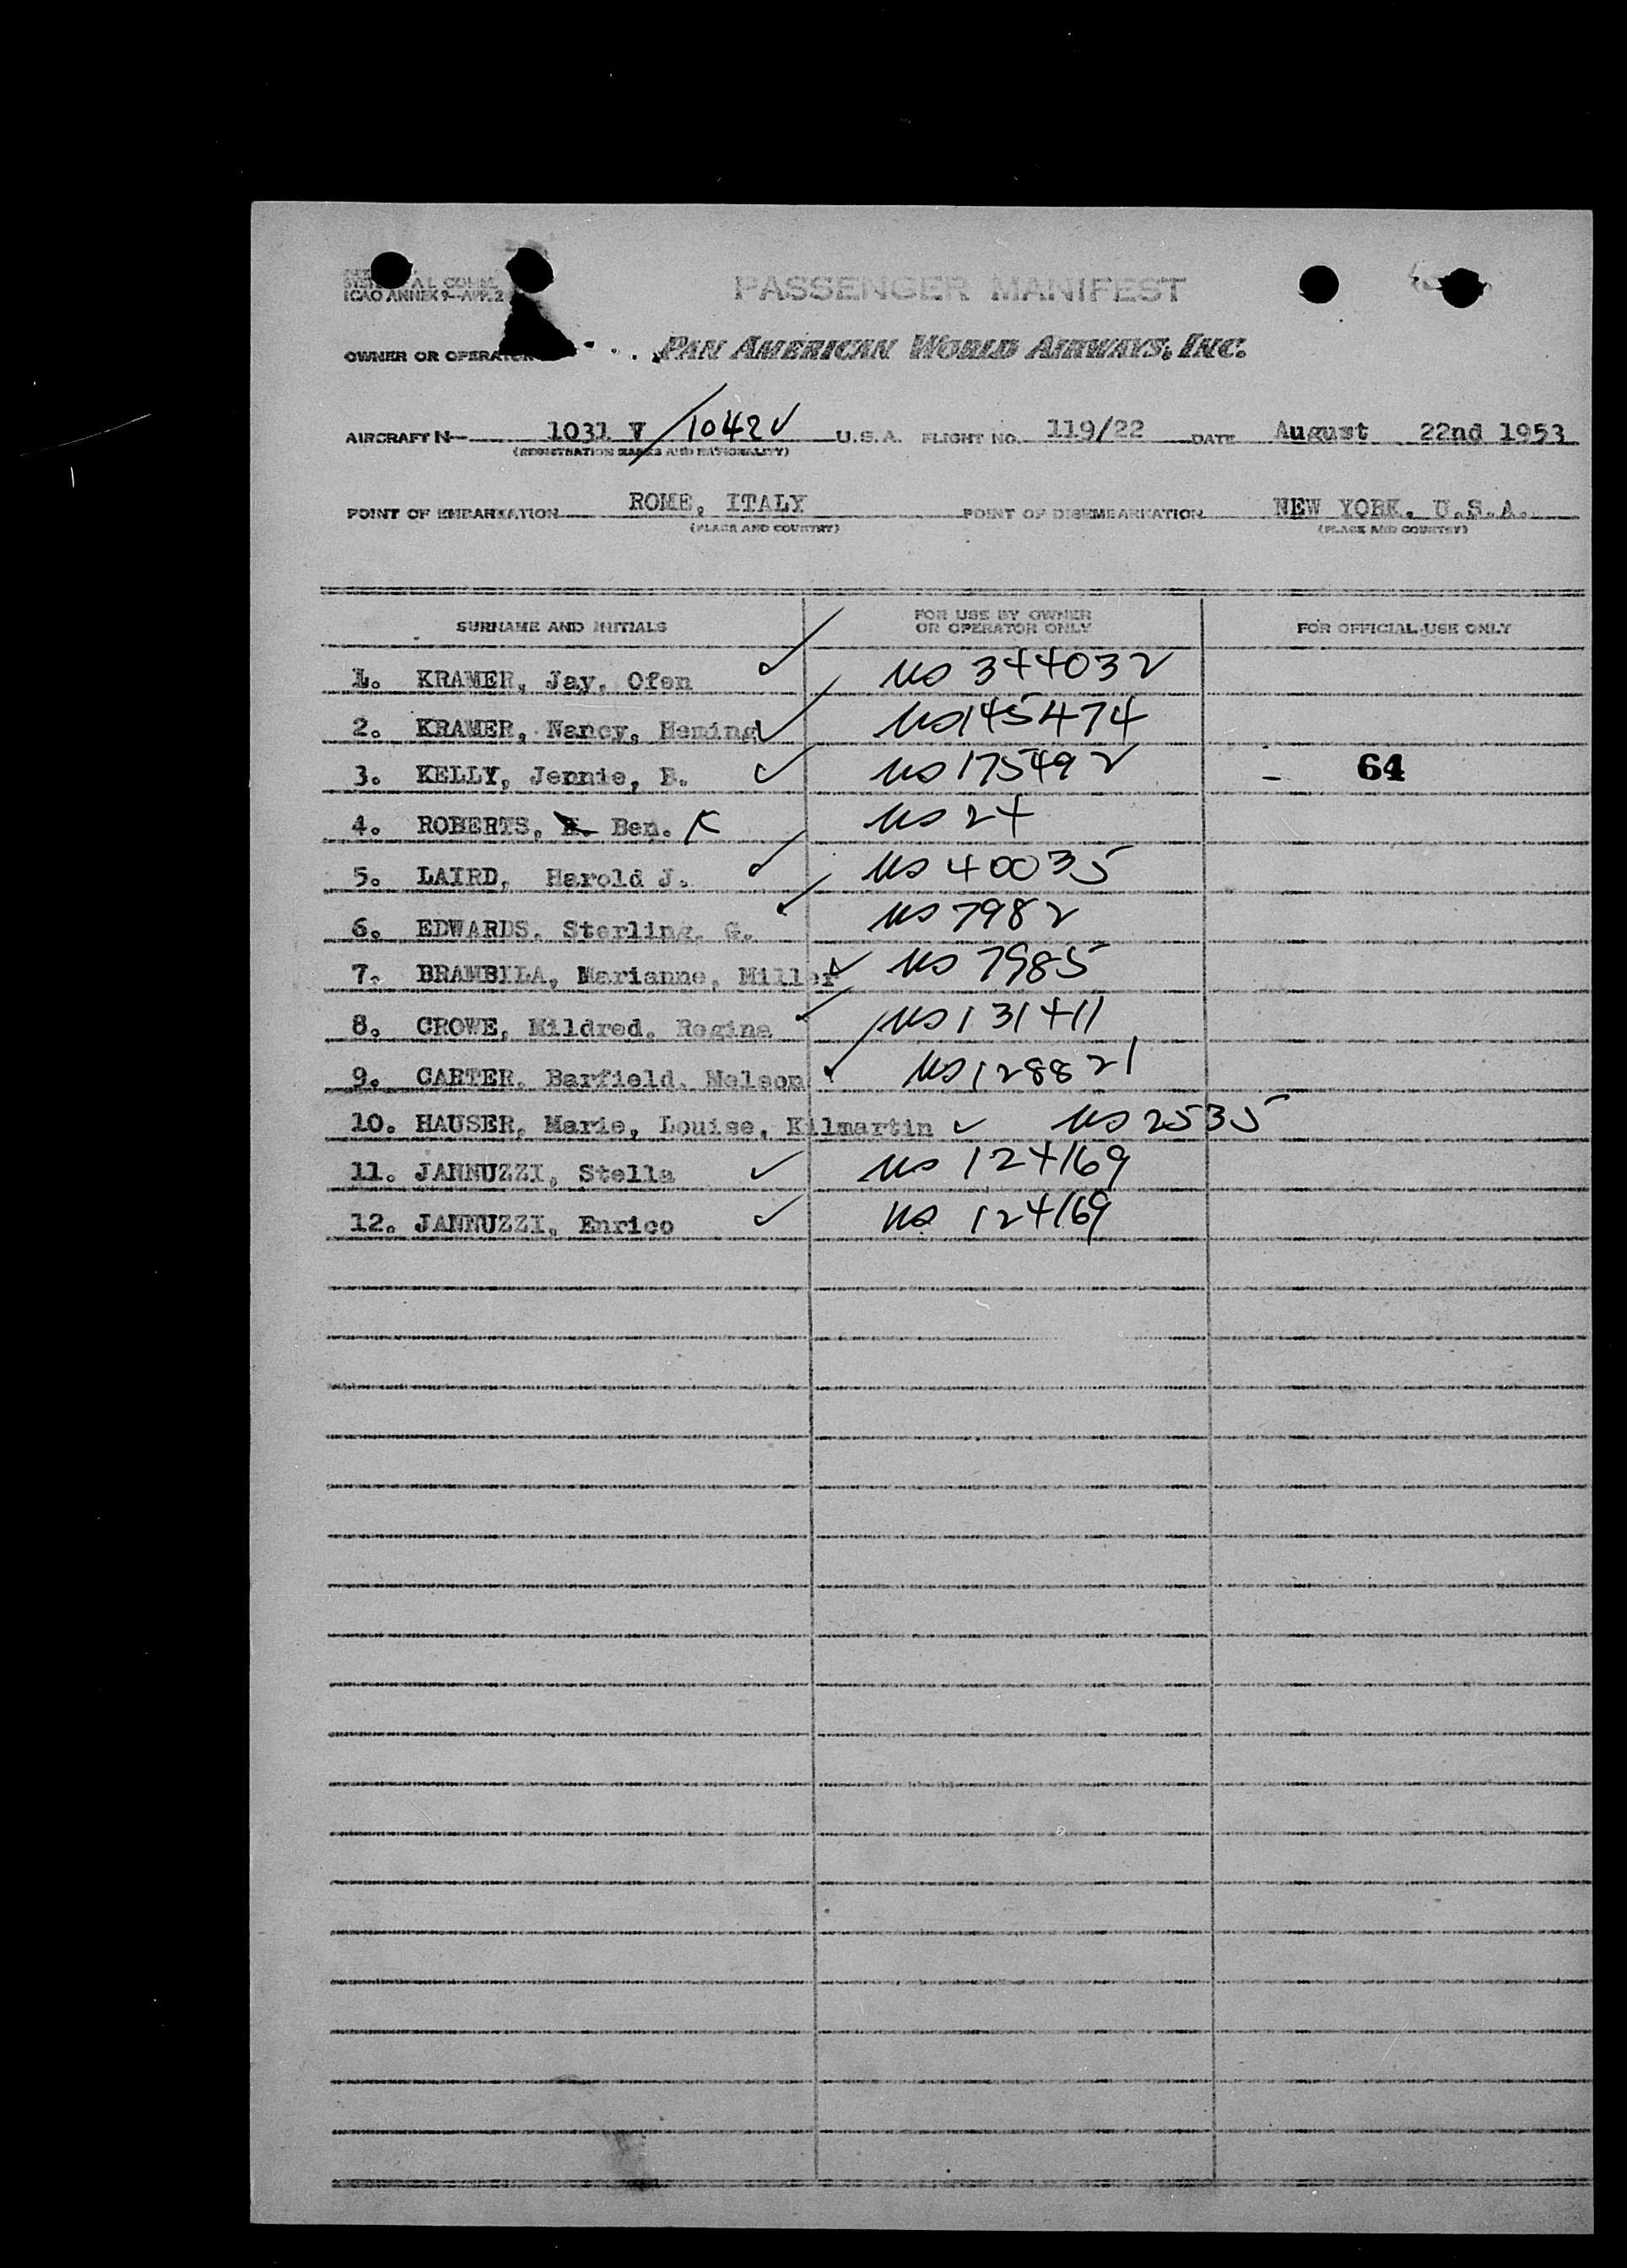 PASSENGER MANIFEST
ICAO ANNEX 9—APP. 2
OWNER OR OPERATOR PAN AMERICAN WORLD AIRWAYS, INC.
AIRCRAFT N— 1031 V / 1042V U.S.A. FLIGHT NO. 119/22 DATE August 22nd 1953
(REGISTRATION MARKS AND NATIONALITY)
POINT OF EMBARKATION ROME, ITALY POINT OF DISEMBARKATION NEW YORK, U.S.A.
(PLACE AND COUNTRY) (PLACE AND COUNTRY)
SURNAME AND INITIALS FOR USE BY OWNER OR OPERATOR ONLY FOR OFFICIAL USE ONLY
1. KRAMER, Jay, Ofen ✓ US 344032
2. KRAMER, Nancy, Heming ✓ US 145474
3. KELLY, Jennie, B. ✓ US 175492 - 64
4. ROBERTS, Ben. K US 24
5. LAIRD, Harold J. ✓ US 40035
6. EDWARDS, Sterling, G. ✓ US 7982
7. BRAMBILA, Marianne, Miller ✓ US 7985
8. CROWE, Mildred, Regina ✓ US 131411
9. CARTER, Barfield, Nelson ✓ US 128821
10. HAUSER, Marie, Louise, Kilmartin ✓ US 2535
11. JANNUZZI, Stella ✓ US 124169
12. JANNUZZI, Enrico ✓ US 124169